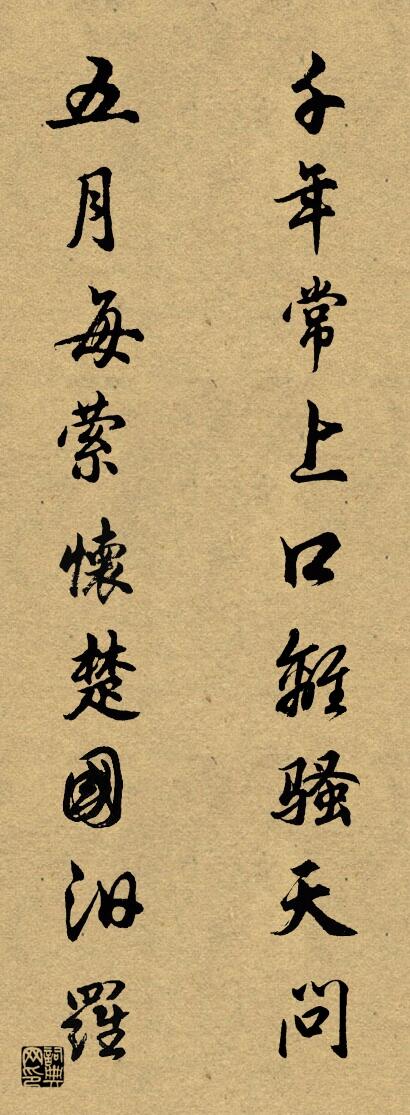 千年常上口離騷天問
五月每縈懷楚國汨羅
詞典网印